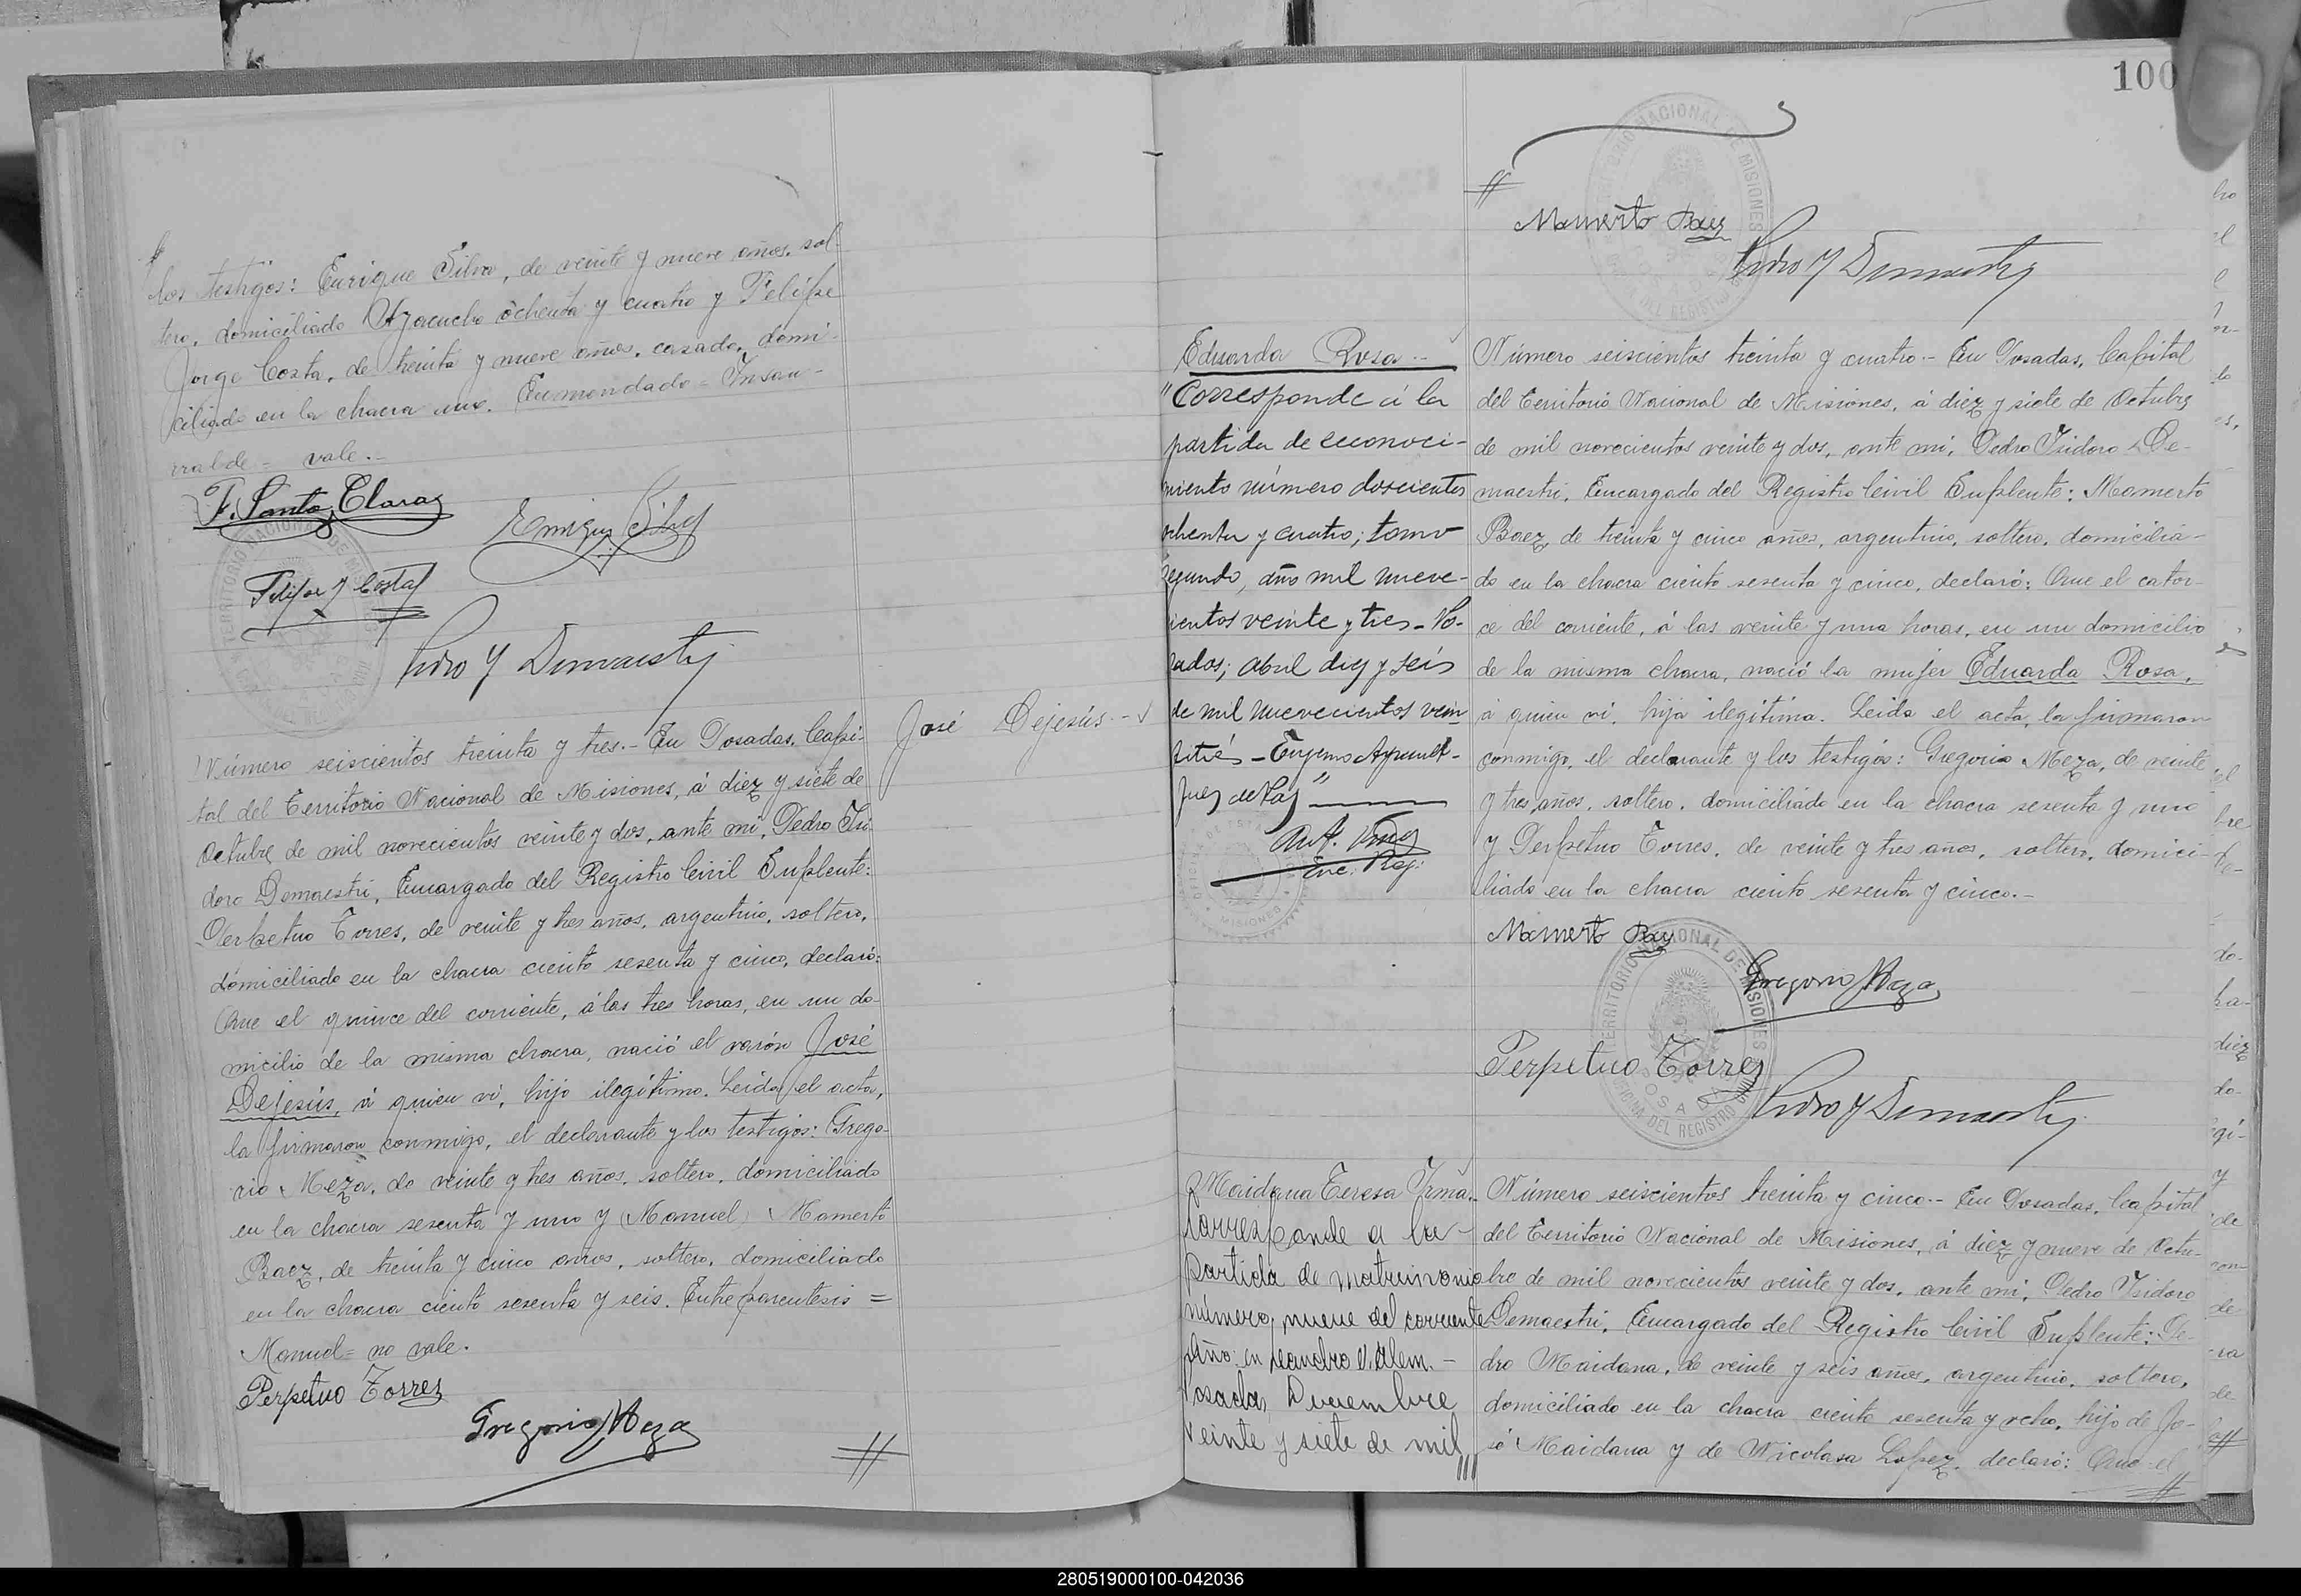 los testigos: Enrique Silva, de veinte y nueve años, sol-
tero, domiciliado Ayacucho ochenta y cuatro y Felipe
Jorge Costa, de treinta y nueve años, casado, domi-
ciliado en la chacra uno. Enmendado = Insau-
rralde = vale.-
F. Santa Claraz
Enrique Silva
Felipe J Costa
Pedro Y Demaestri
Número seiscientos treinta y tres.- En Posadas, Capi-
tal del Territorio Nacional de Misiones, á diez y siete de
Octubre de mil novecientos veinte y dos, ante mi, Pedro Isi-
doro Demaestri, Encargado del Registro Civil Suplente:
Perpetuo Torres, de veinte y tres años, argentino, soltero,
domiciliado en la chacra ciento sesenta y cinco, declaró:
Que el quince del corriente, á las tres horas, en un do-
micilio de la misma chacra, nació el varón José
Dejesús, á quien ví, hijo ilegítimo. Leída el acta,
la firmaron conmigo, el declarante y los testigos: Grego-
rio Meza, de veinte y tres años, soltero, domiciliado
en la chacra sesenta y uno y (Manuel) Mamerto
Baez, de treinta y cinco años, soltero, domiciliado
en la chacra ciento sesenta y seis. Entre parentesis =
Manuel = no vale.
Perpetuo Torres
Gregorio Meza
José Dejesús.-
100
Mamerto Baez
Pedro Y Demaestri
Eduarda Rosa.-
"Corresponde á la
partida de reconoci-
miento número doscientos
ochenta y cuatro; tomo
segundo, año mil nueve-
cientos veinte y tres - Po-
sadas; abril diez y seis
de mil nuevecientos vein
titrés -
Juez de Paz"
Enc. Reg.
Número seiscientos treinta y cuatro.- En Posadas, Capital
del Territorio Nacional de Misiones, á diez y siete de Octubre
de mil novecientos veinte y dos, ante mi, Pedro Isidoro De-
maestri, Encargado del Registro Civil Suplente: Mamerto
Baez, de treinta y cinco años, argentino, soltero, domicilia-
do en la chacra ciento sesenta y cinco, declaró: Que el cator-
ce del corriente, á las veinte y una horas, en un domicilio
de la misma chacra, nació la mujer Eduarda Rosa,
á quien ví, hija ilegítima. Leída el acta, la firmaron
conmigo, el declarante y los testigos: Gregorio Meza, de veinte
y tres años, soltero, domiciliado en la chacra sesenta y uno
y Perpetuo Torres, de veinte y tres años, soltero, domici-
liado en la chacra ciento sesenta y cinco.-
Mamerto Baez
Gregorio Meza
Perpetuo Torres
Pedro Y Demaestri
TERRITORIO NACIONAL DE MISIONES
OFICINA DEL REGISTRO CIVIL
POSADAS
Maidana Teresa Irma.-
Corresponde a la
partida de matrimonio
número nueve del corriente
año en Leandro N. Alem.-
Posadas, Diciembre
veinte y siete de mil
Número seiscientos treinta y cinco.- En Posadas, Capital
del Territorio Nacional de Misiones, á diez y nueve de Octu-
bre de mil novecientos veinte y dos, ante mi, Pedro Isidoro
Demaestri, Encargado del Registro Civil Suplente: Pe-
dro Maidana, de veinte y seis años, argentino, soltero,
domiciliado en la chacra ciento sesenta y ocho, hijo de Jo-
sé Maidana y de Nicolasa Lopez, declaró: Que el
280519000100-042036